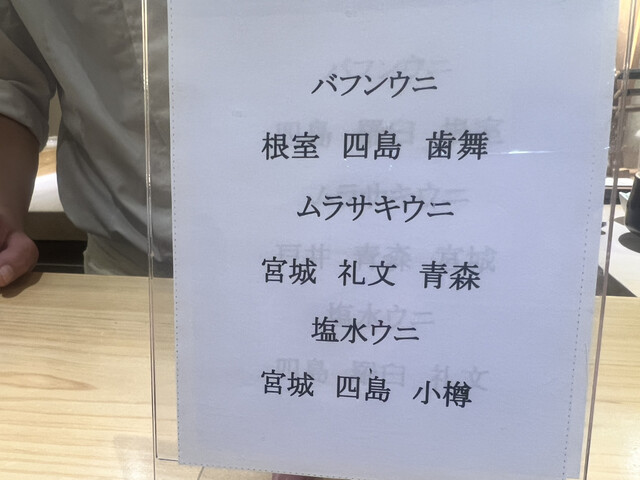 バフンウニ
根室 四島 歯舞
ムラサキウニ
宮城 礼文 青森
塩水ウニ
宮城 四島 小樽